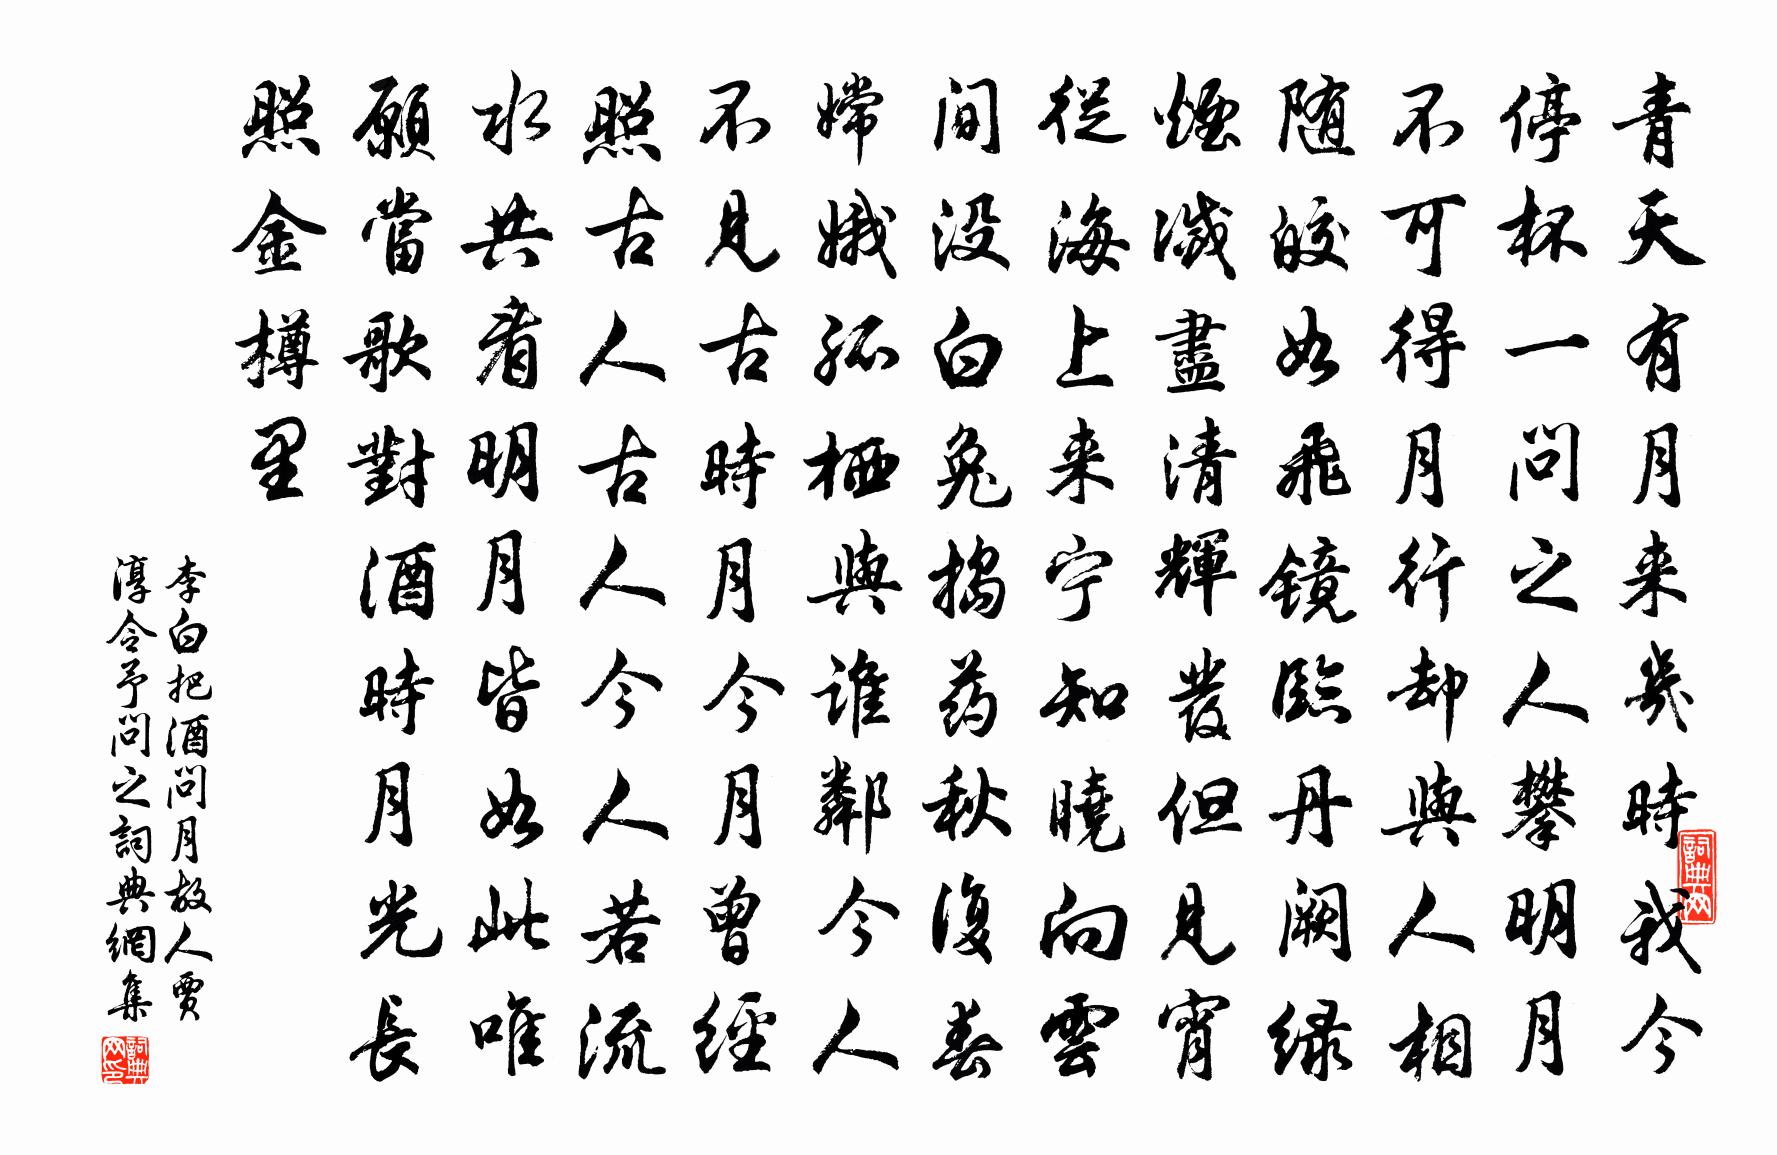 青天有月来幾時我今
停杯一問之人攀明月
不可得月行却與人相
随皎如飛鏡臨丹阙緑
煙滅盡清輝發但見宵
從海上来宁知曉向雲
间没白兔搗药秋復春
嫦娥孤栖與誰鄰今人
不見古時月今月曾經
照古人古人今人若流
水共看明月皆如此唯
願當歌對酒時月光長
照金樽里
李白把酒問月故人賈
淳令予問之詞典網集
詞典网